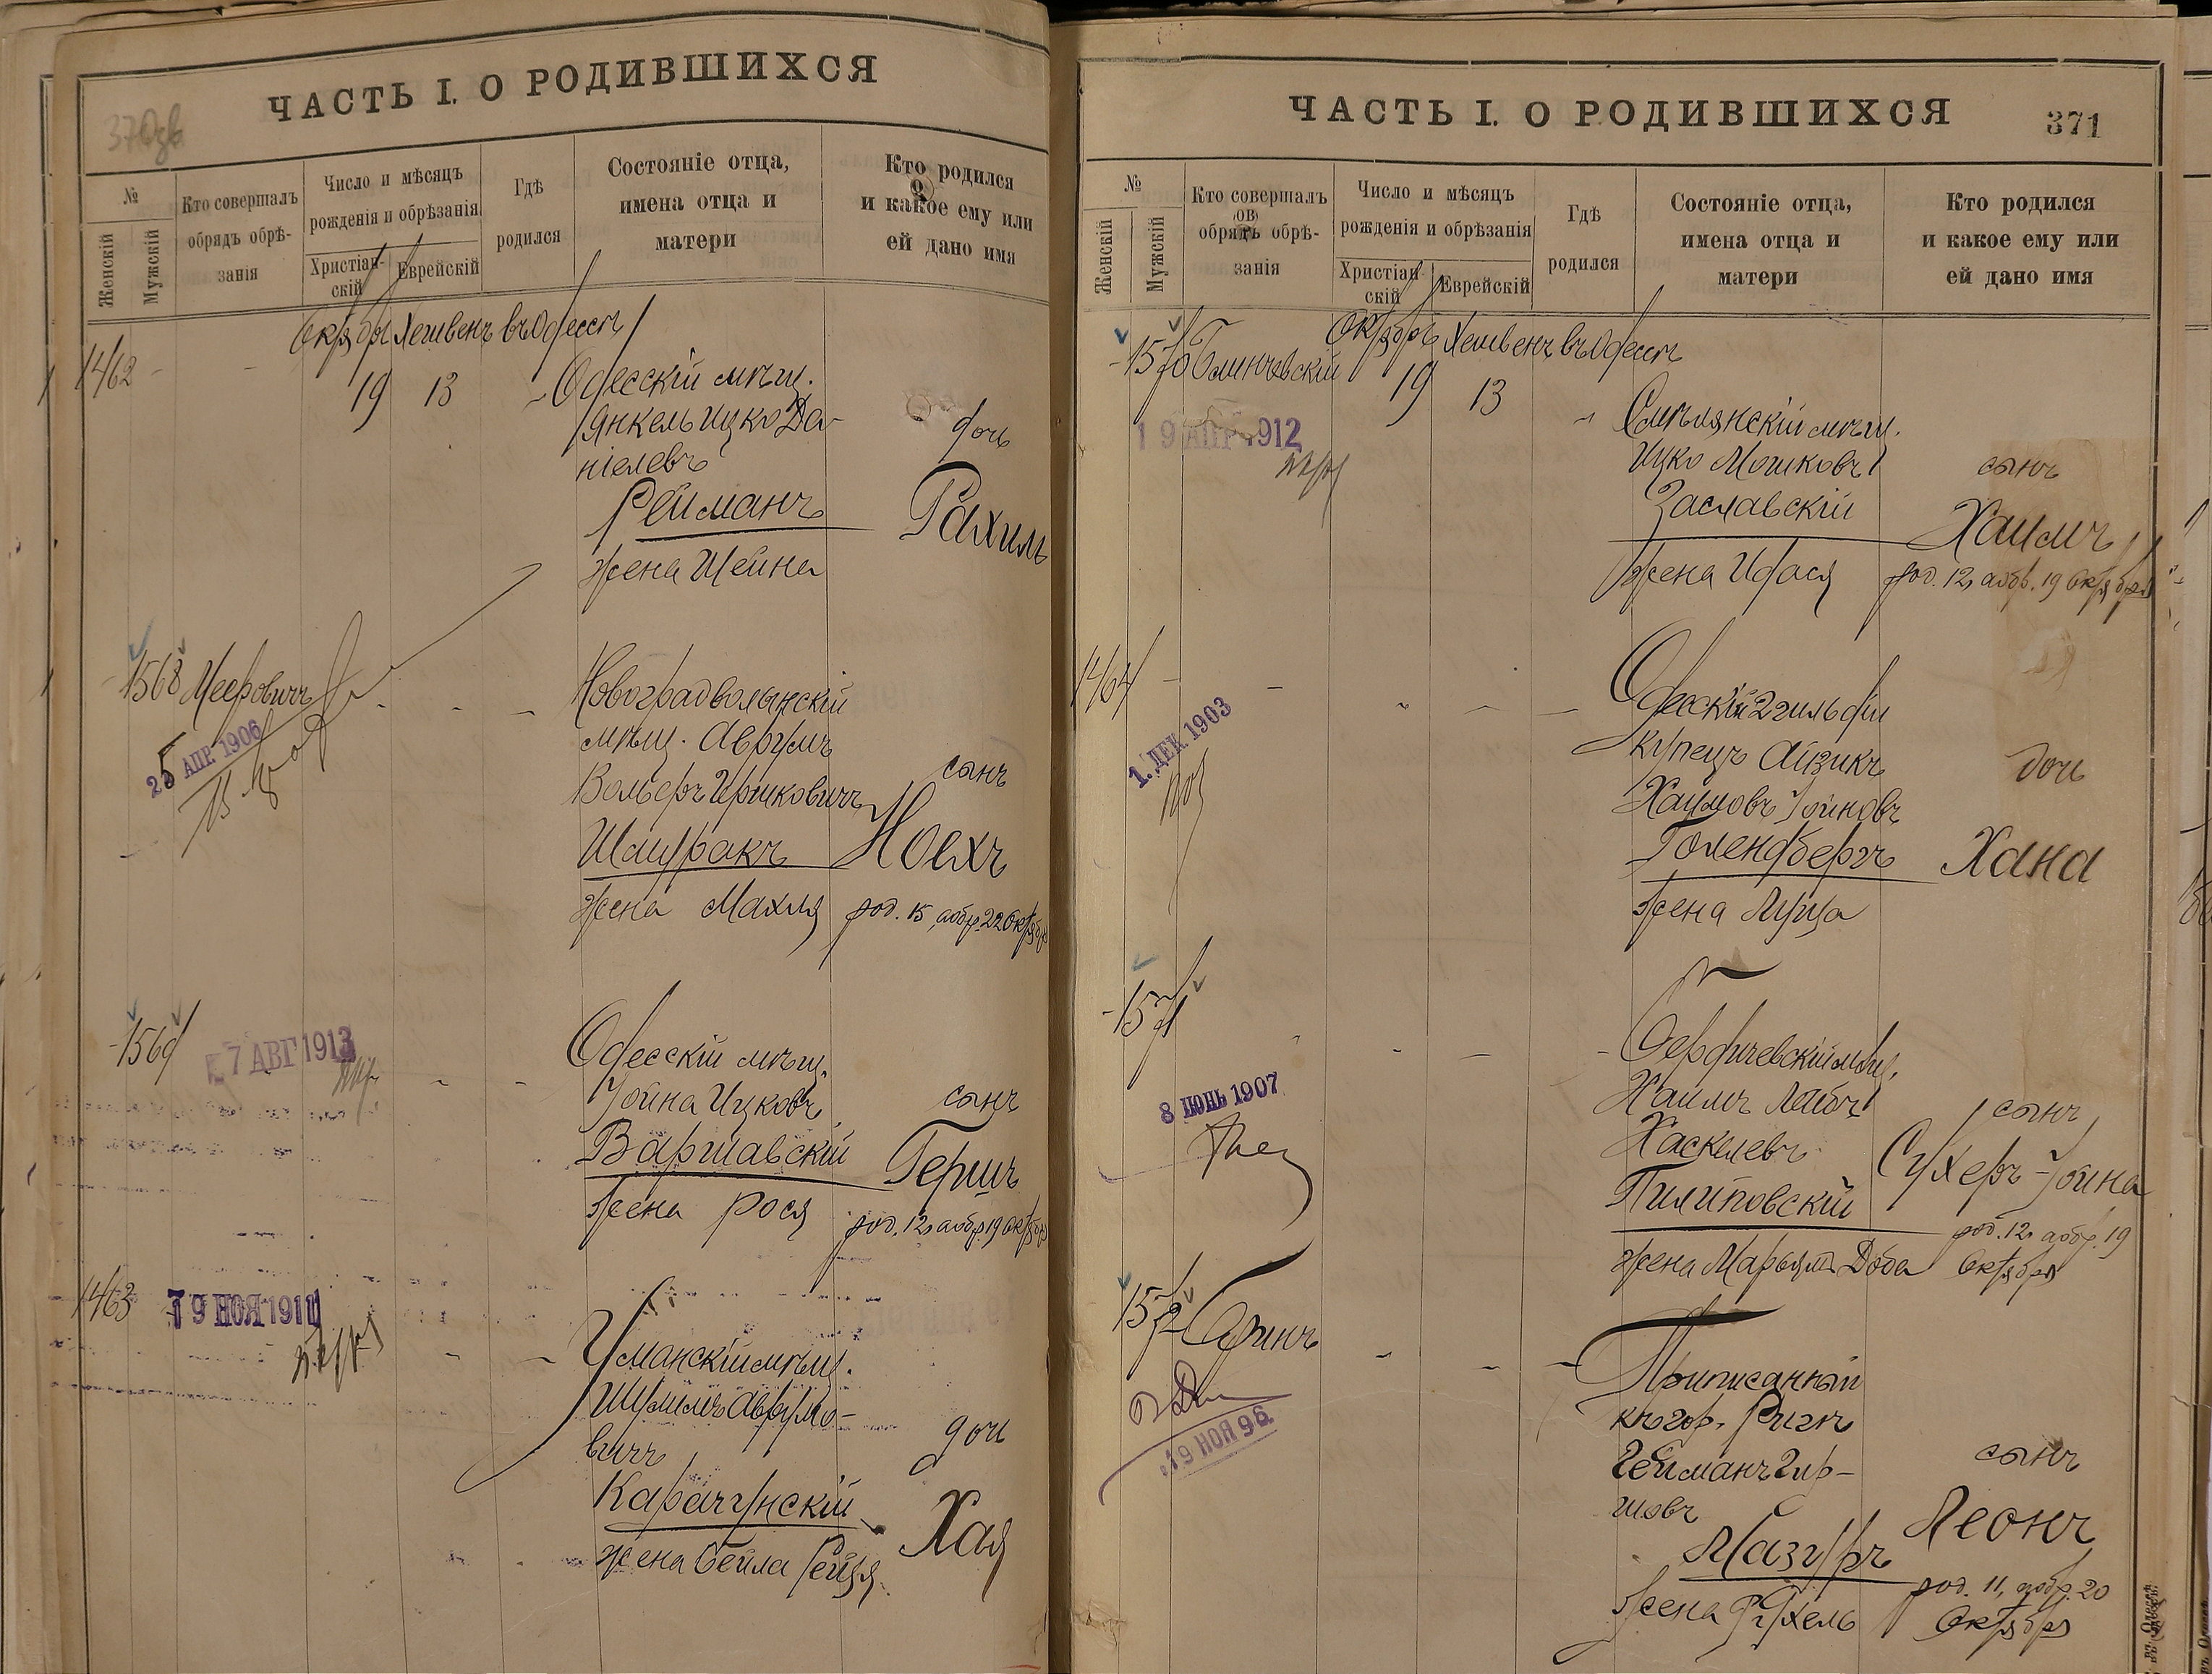 ЧАСТЬ I. О РОДИВШИХСЯ
№
Женскій
Мужскій
Кто совершалъ
обрядъ обрѣ-
занія
Число и мѣсяцъ
рожденія и обрѣзанія
Христіан-
скій
Еврейскій
Гдѣ
родился
Состояніе отца,
имена отца и
матери
Кто родился
и какое ему или
ей дано имя
Октябрь Хешвенъ въ Одессѣ
1462 - - 19 13 -
Одесскій мѣщ.
Янкель Ицко Да-
ніелевъ
Рейманъ
жена Шейна
дочь
Рахиль
1568 Мееровичъ
25 АПР. 1906
Новоградволынскій
мѣщ. Аврумъ
Вольфъ Ершковичъ
Шаиракъ
жена Махля
сынъ
Ноехъ
род. 15, аобр. 22 Октября
1569
7 АВГ 1913
Одесскій мѣщ.
Іойна Ицковъ
Варшавскій
жена Рося
сынъ
Гершъ
род. 12, аобр. 19 Октября
1463
19 НОЯ 1911
Уманскій мѣщ.
Шулимъ Аврумо-
вичъ
Карачунскій
жена Бейла Рейзя
дочь
Хая
ЧАСТЬ I. О РОДИВШИХСЯ
371
№
Женскій
Мужскій
Кто совершалъ
обрядъ обрѣ-
занія
Число и мѣсяцъ
рожденія и обрѣзанія
Христіан-
скій
Еврейскій
Гдѣ
родился
Состояніе отца,
имена отца и
матери
Кто родился
и какое ему или
ей дано имя
Октябрь Хешвенъ въ Одессѣ
1570 19 13 -
19 АПР 1912
Смѣлянскій мѣщ.
Ицко Мошковъ
Заславскій
жена Идася
сынъ
Хаимъ
род. 12, аобр. 19 Октября
1464
1. ДЕК 1903
Одесскій 2 гильдіи
купецъ Айзикъ
Хаимовъ Іойновъ
Голендбергъ
жена Луца
дочь
Хана
1571
8 ІЮНЬ 1907
Бердичевскій мѣщ.
Хаимъ Лейбъ
Хаскелевъ
Пилиповскій
жена Марьямъ Доба
сынъ
Сухеръ-Іойна
род. 12, аобр. 19
Октября
1572
19 НОЯ 96
Приписанный
къ гор. Ригѣ
Гейманъ Гир-
шовъ
Мазуръ
жена Рухель
сынъ
Леонъ
род. 11, аобр. 20
Октября